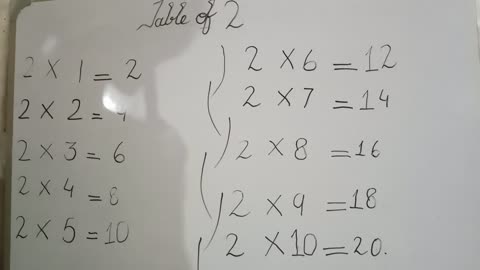 Table of 2
2 × 1 = 2
2 × 2 = 4
2 × 3 = 6
2 × 4 = 8
2 × 5 = 10
2 × 6 = 12
2 × 7 = 14
2 × 8 = 16
2 × 9 = 18
2 × 10 = 20.